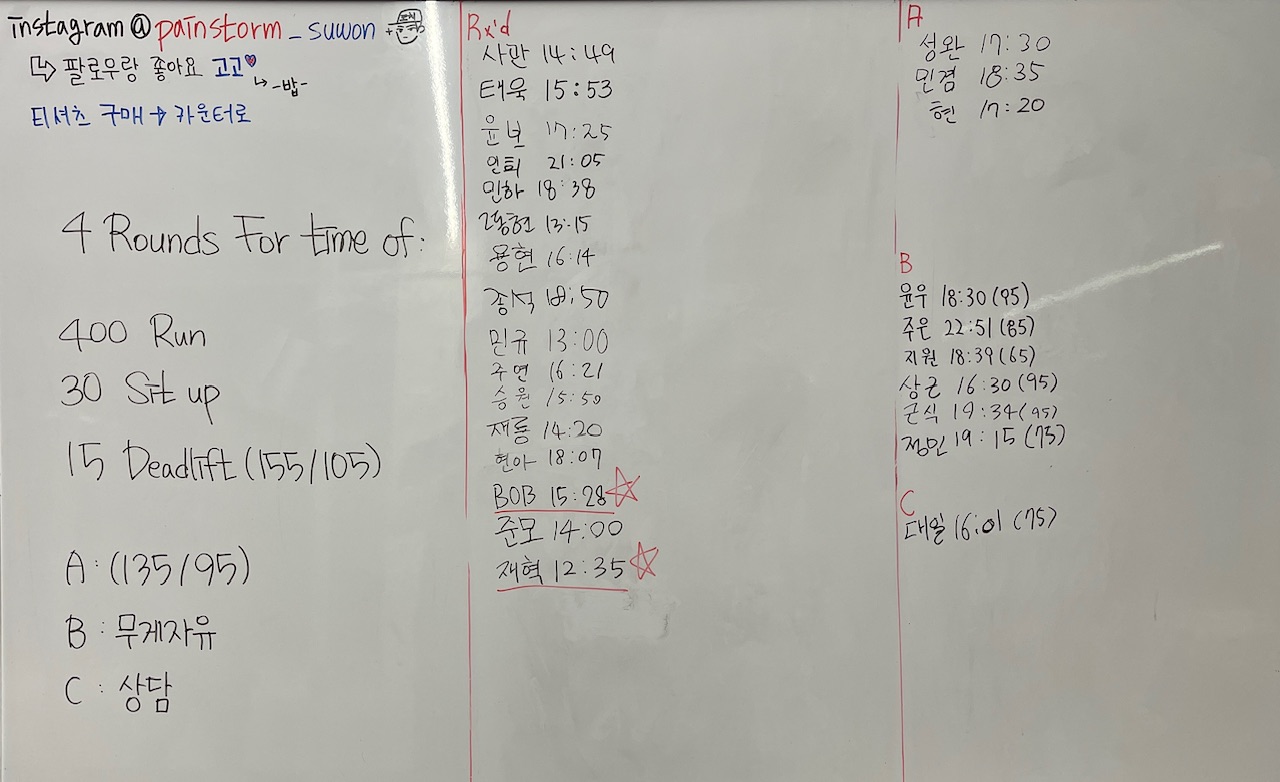 instagram@painstorm_suwon
↳ 팔로우랑 좋아요 고고♥
↳ -밥-
티셔츠 구매 → 카운터로
4 Rounds For time of:
400 Run
30 Sit up
15 Deadlift (155/105)
A : (135/95)
B : 무게자유
C : 상담
Rx'd
사관 14:49
태욱 15:53
윤보 17:25
21:05
민하 18:38
13:15
용현 16:14
종석 18:50
민규 13:00
주연 16:21
승원 15:50
재룡 14:20
현아 18:07
BOB 15:28 ☆
준모 14:00
재혁 12:35 ☆
A
성완 17:30
민겸 18:35
현 17:20
B
윤우 18:30 (95)
주은 22:51 (85)
지원 18:39 (65)
상근 16:30 (95)
군식 19:34 (95)
정민 19:15 (75)
C
대일 16:01 (75)